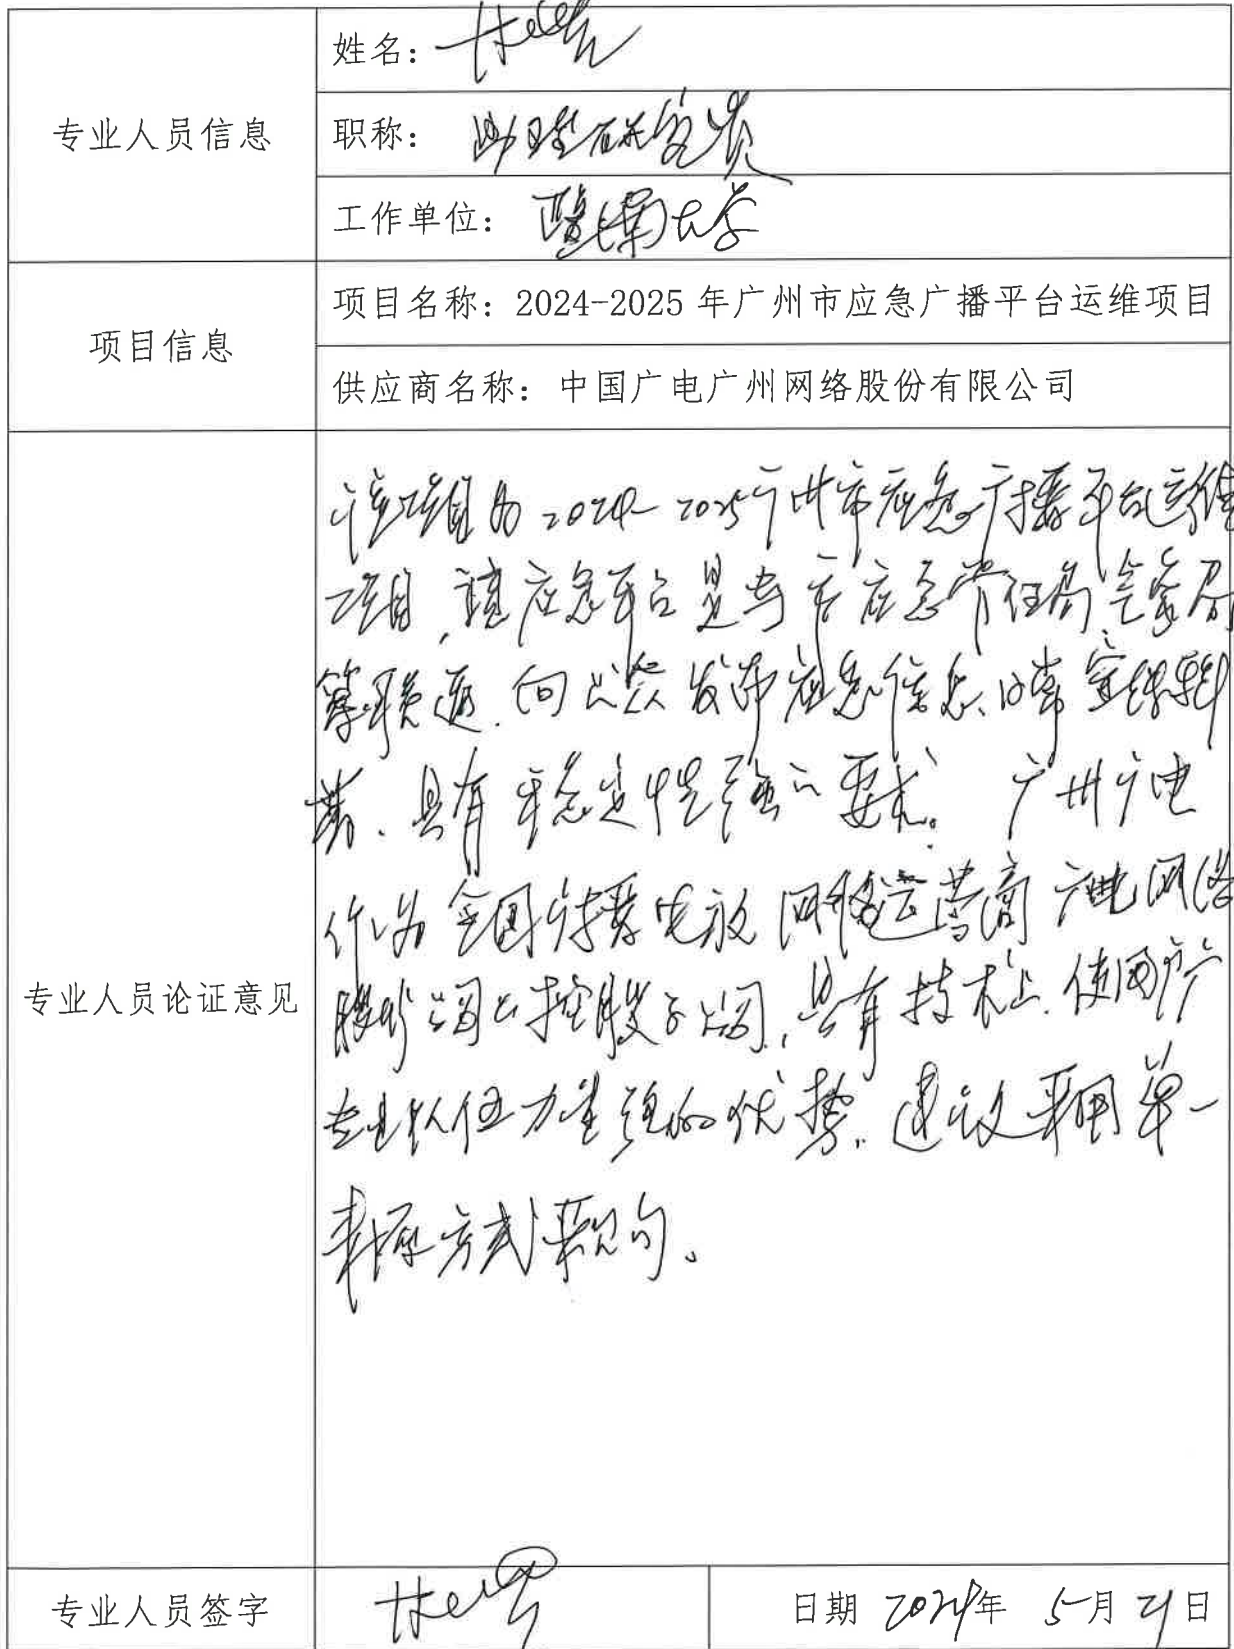 专业人员信息
姓名：
职称：助理研究员
工作单位：暨南大学
项目信息
项目名称：2024-2025年广州市应急广播平台运维项目
供应商名称：中国广电广州网络股份有限公司
专业人员论证意见
该项目为2024-2025广州市应急广播平台运维
项目，该应急平台是与市应急管理局气象局
等联通，向公众发布应急信息、日常宣传
具有 稳定性强的要求。广州广电
作为全国广播电视网络运营商广电网络
股份公司的控股子公司，具有技术上、使用
专业队伍力量强的优势，建议采用单一
来源方式采购。
专业人员签字
日期 2024年 5月21日